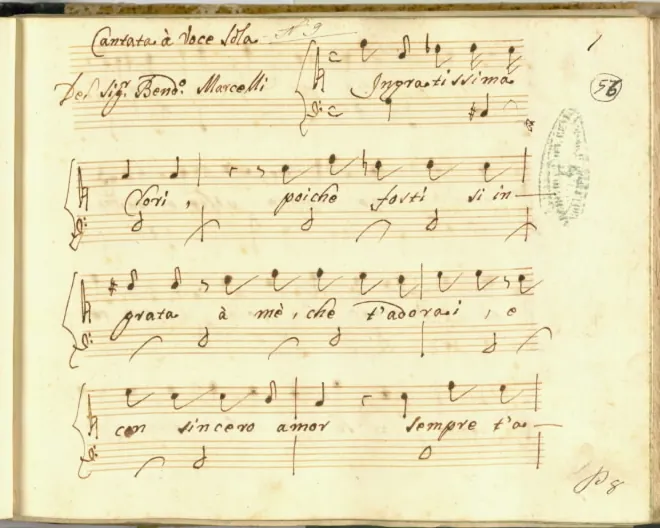 Cantata à Voce Sola
N° 9
1
Del Sigr. Bendo. Marcelli
56
Ingratissima
Clori, poiche fosti si in-
grata à mè, che t'adorai, e
con sincero amor sempre t'a-